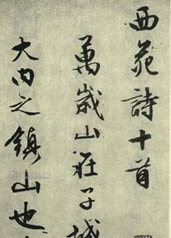 西苑詩十首
萬歲山在子城
大內之鎮山也